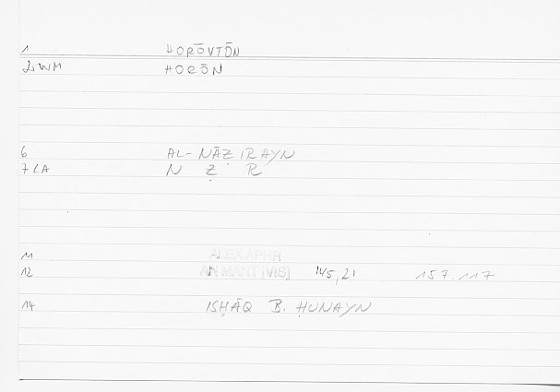 1 HORŌVTŌN
2,WM HORŌN
6 AL-NĀẒIRAYN
7 LA N Ẓ R
11 ALEX APHR
12 AN MANT [VIS] 145,21 157.117
14 ISḤĀQ B. ḤUNAYN